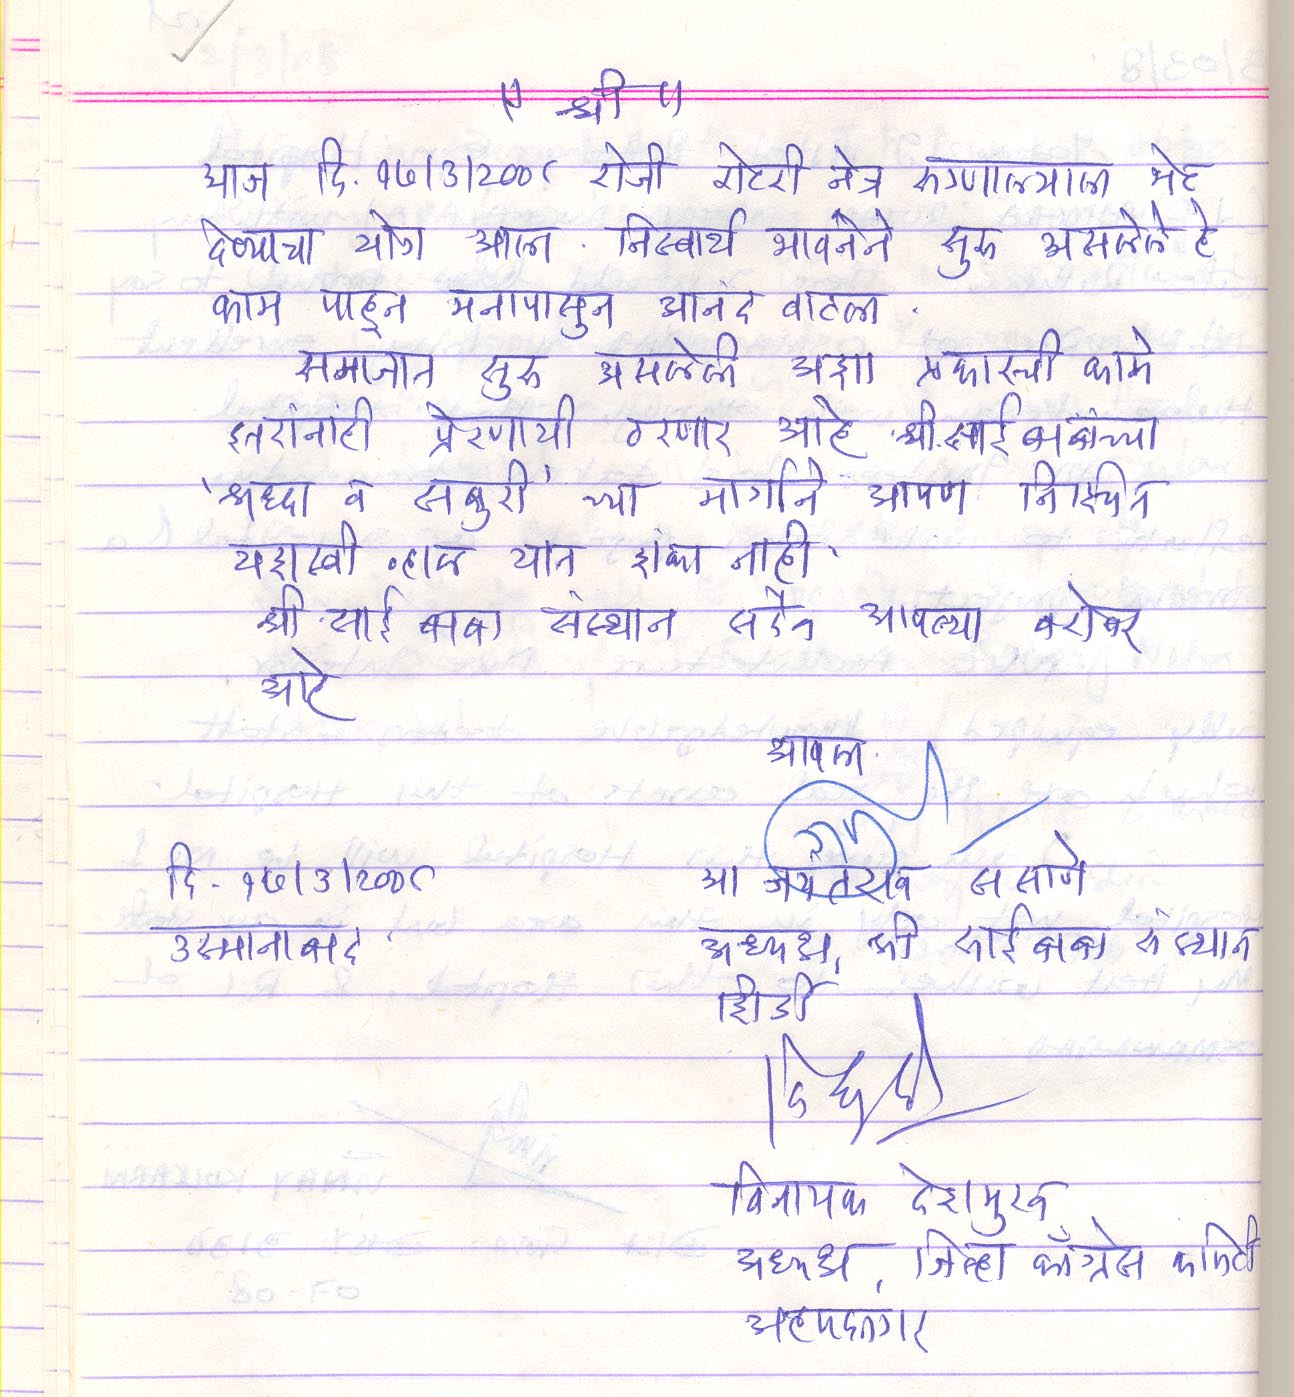 ॥ श्री ॥
आज दि. १७/३/२००८ रोजी रोटरी नेत्र रुग्णालयाला भेट
देण्याचा योग आला. निस्वार्थ भावनेने सुरु असलेले हे
काम पाहून मनापासुन आनंद वाटला.
समाजात सुरु असलेली अशा प्रकारची कामे
इतरांनांही प्रेरणायी ठरणार आहे. श्री साई बाबांच्या
'श्रध्दा व सबुरी' च्या मार्गाने आपण निश्चित
यशस्वी व्हाल यात शंका नाही.
श्री साई बाबा संस्थान सदैव आपल्या बरोबर
आहे
आपला.
दि. १७/३/२००८
आ जयंतराव ससाणे
उस्मानाबाद.
अध्यक्ष, श्री साई बाबा संस्थान
शिर्डी
विनायक देशमुख
अध्यक्ष, जिल्हा काँग्रेस कमिटी
अहमदनगर